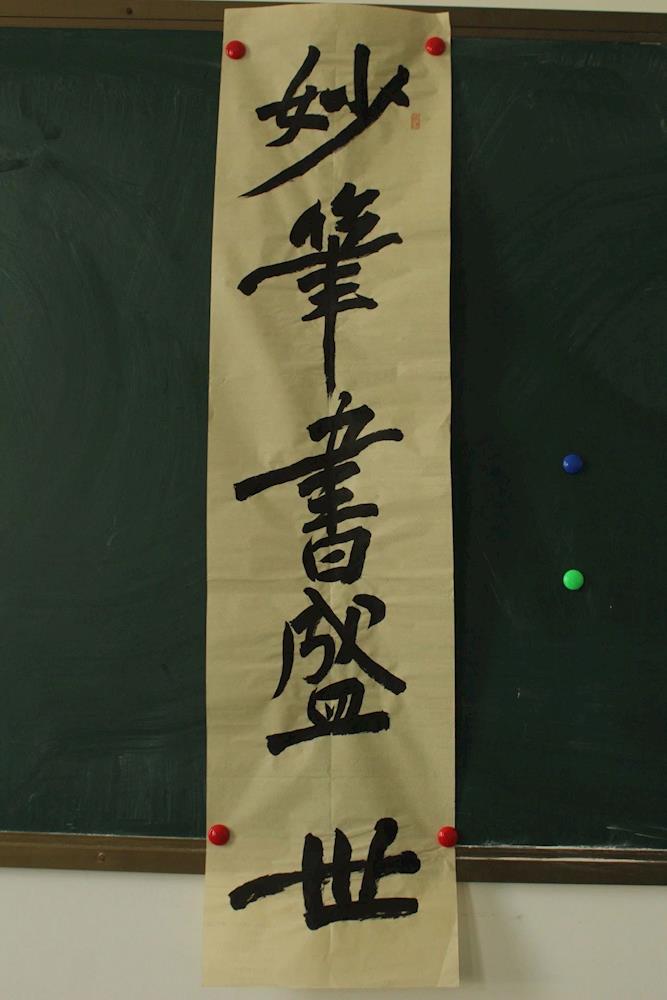 妙筆書盛世